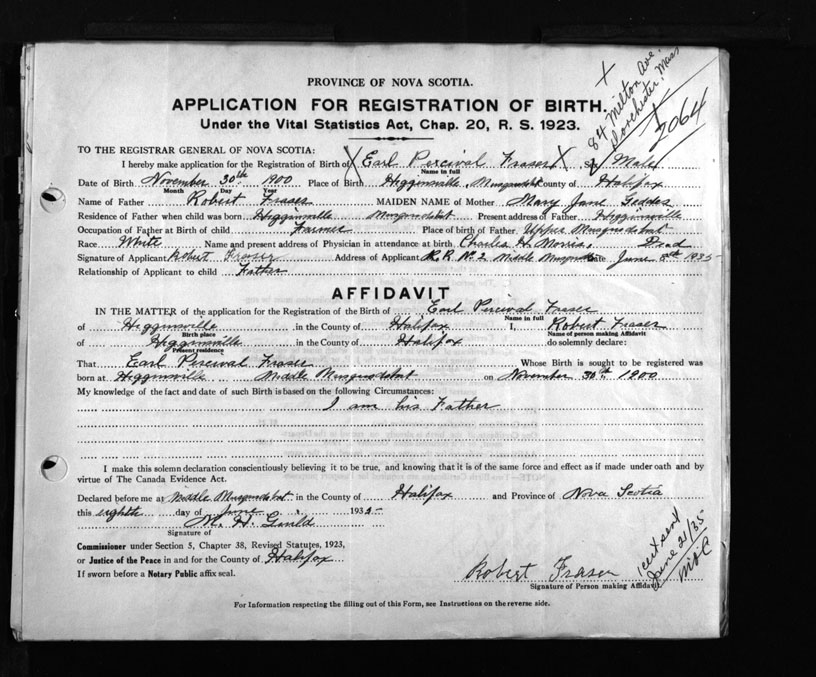 PROVINCE OF NOVA SCOTIA.
APPLICATION FOR REGISTRATION OF BIRTH.
Under the Vital Statistics Act, Chap. 20, R. S. 1923.
X
84 Milton Ave.
Dorchester, Mass
2064
TO THE REGISTRAR GENERAL OF NOVA SCOTIA:
I hereby make application for the Registration of Birth of X Earl Percival Fraser X Sex Male
Name in full
Date of Birth November 30th 1900 Place of Birth Higginsville, Musquodobit County of Halifax
Month Day Year
Name of Father Robert Fraser MAIDEN NAME of Mother Mary Jane Geddes
Residence of Father when child was born Higginsville Musquodobit Present address of Father Higginsville
Occupation of Father at Birth of child Farmer Place of birth of Father Upper Musquodobit
Race White Name and present address of Physician in attendance at birth Charles H. Morris, Dead
Signature of Applicant Robert Fraser Address of Applicant R.R. No. 2 Middle Date June 8th 1935
Relationship of Applicant to child Father
AFFIDAVIT
IN THE MATTER of the application for the Registration of the Birth of Earl Percival Fraser
Name in full
of Higginsville in the County of Halifax I, Robert Fraser
Birth place Name of person making Affidavit
of Higginsville in the County of Halifax do solemnly declare:
Present residence
That Earl Percival Fraser Whose Birth is sought to be registered was
born at Higginsville Middle Musquodobit on November 30th 1900
My knowledge of the fact and date of such Birth is based on the following Circumstances:
I am his Father
I make this solemn declaration conscientiously believing it to be true, and knowing that it is of the same force and effect as if made under oath and by
virtue of The Canada Evidence Act.
Declared before me at Middle Musquodobit in the County of Halifax and Province of Nova Scotia
this eighth day of June 1935
M. H. Guild
Signature of
Commissioner under Section 5, Chapter 38, Revised Statutes, 1923,
or Justice of the Peace in and for the County of Halifax
If sworn before a Notary Public affix seal.
Robert Fraser
Signature of Person making Affidavit
1 cert sent
June 21/35
For Information respecting the filling out of this Form, see Instructions on the reverse side.